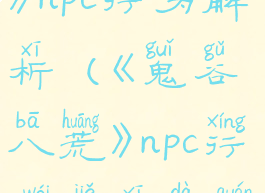 》npc行为解
xī guǐ gǔ
析（《鬼谷
bā huāng xíng
八荒》npc行
wéi jiě xī dà quán